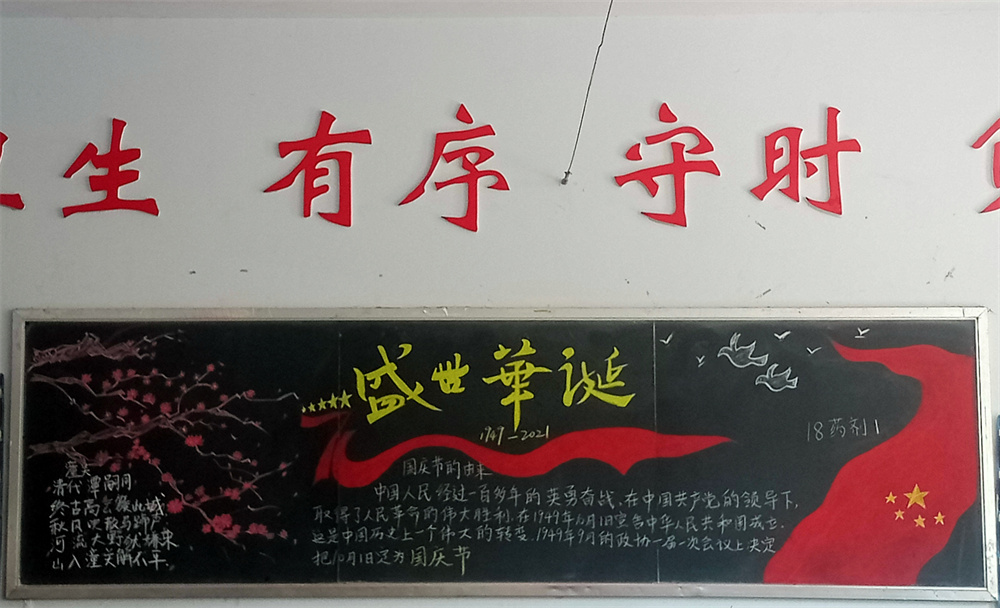 生 有序 守时
盛世華诞
1949-2021
18药剂1
潼关
清代 覃嗣同
终古高云簇此城
秋风吹散马蹄声
河流大野犹嫌束
山入潼关解不平
国庆节的由来
中国人民经过一百多年的英勇奋战,在中国共产党的领导下,
取得了人民革命的伟大胜利,在1949年10月1日宣告中华人民共和国成立.
这是中国历史上一个伟大的转变.1949年9月的政协一届一次会议上决定
把10月1日定为国庆节